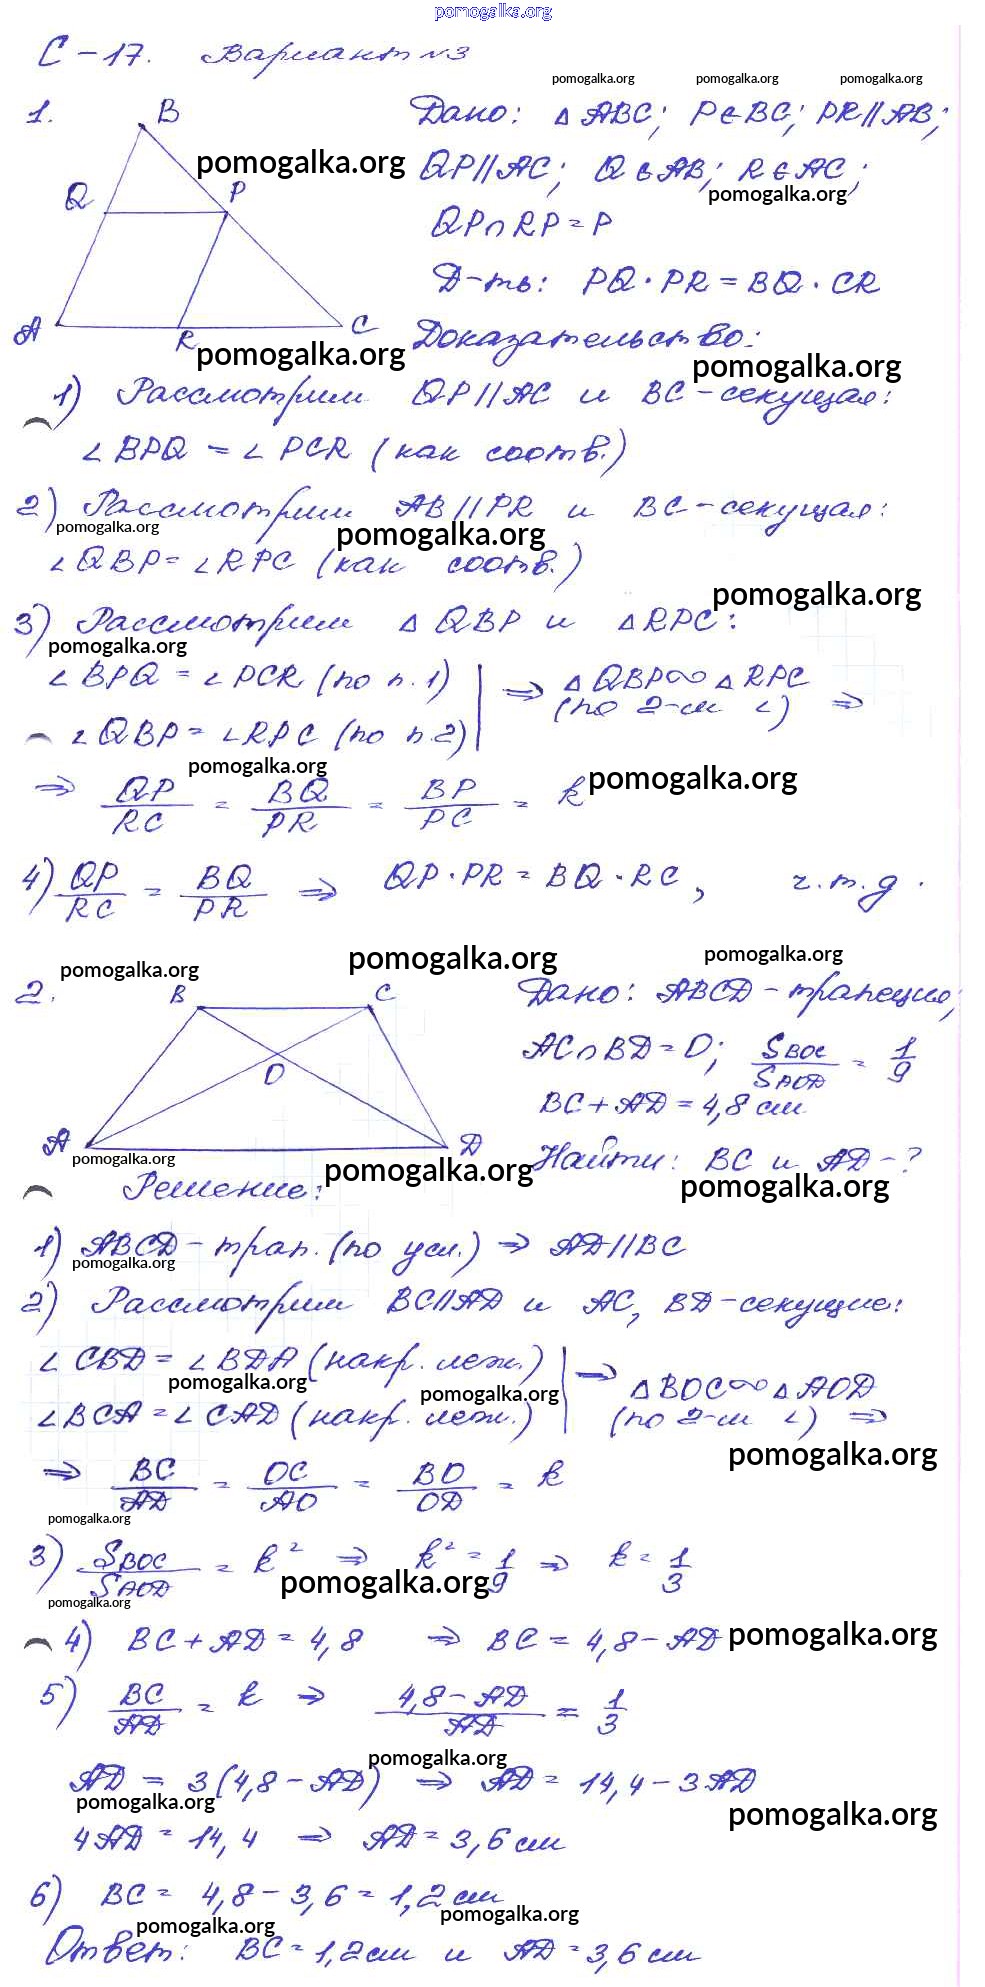 pomogalka.org
С-17. Вариант №3
pomogalka.org pomogalka.org pomogalka.org
1. B Q P A R C
Дано: △ABC; P∈BC; PR∥AB;
pomogalka.org
QP∥AC; Q∈AB; R∈AC;
pomogalka.org
QP∩RP=P
Д-ть: PQ·PR=BQ·CR
Доказательство:
pomogalka.org pomogalka.org
1) Рассмотрим QP∥AC и BC-секущая:
∠BPQ=∠PCR (как соотв.)
2) Рассмотрим AB∥PR и BC-секущая:
pomogalka.org pomogalka.org
∠QBP=∠RPC (как соотв.)
pomogalka.org
3) Рассмотрим △QBP и △RPC:
pomogalka.org
∠BPQ=∠PCR (по п.1) | ⇒ △QBP∞△RPC
∠QBP=∠RPC (по п.2) | (по 2-м ∠) ⇒
pomogalka.org pomogalka.org
⇒ QP/RC = BQ/PR = BP/PC = k
4) QP/RC = BQ/PR ⇒ QP·PR=BQ·RC, ч.т.д.
pomogalka.org pomogalka.org pomogalka.org
2. B C O A D
Дано: ABCD-трапеция;
AC∩BD=O; S BOC/S AOD = 1/9
BC+AD=4,8 см
Найти: BC и AD-?
pomogalka.org pomogalka.org pomogalka.org
Решение:
1) ABCD-трап. (по усл.) ⇒ AD∥BC
pomogalka.org
2) Рассмотрим BC∥AD и AC, BD-секущие:
∠CBD=∠BDA (накр. леж.) | ⇒ △BOC∞△AOD
pomogalka.org pomogalka.org
∠BCA=∠CAD (накр. леж.) | (по 2-м ∠) ⇒
pomogalka.org
⇒ BC/AD = OC/AO = BO/OD = k
pomogalka.org
3) S BOC/S AOD = k² ⇒ k²=1/9 ⇒ k=1/3
pomogalka.org pomogalka.org
4) BC+AD=4,8 ⇒ BC=4,8-AD
pomogalka.org
5) BC/AD = k ⇒ 4,8-AD/AD = 1/3
pomogalka.org
AD=3(4,8-AD) ⇒ AD=14,4-3AD
pomogalka.org pomogalka.org
4AD=14,4 ⇒ AD=3,6 см
6) BC=4,8-3,6=1,2 см
pomogalka.org pomogalka.org
Ответ: BC=1,2 см и AD=3,6 см